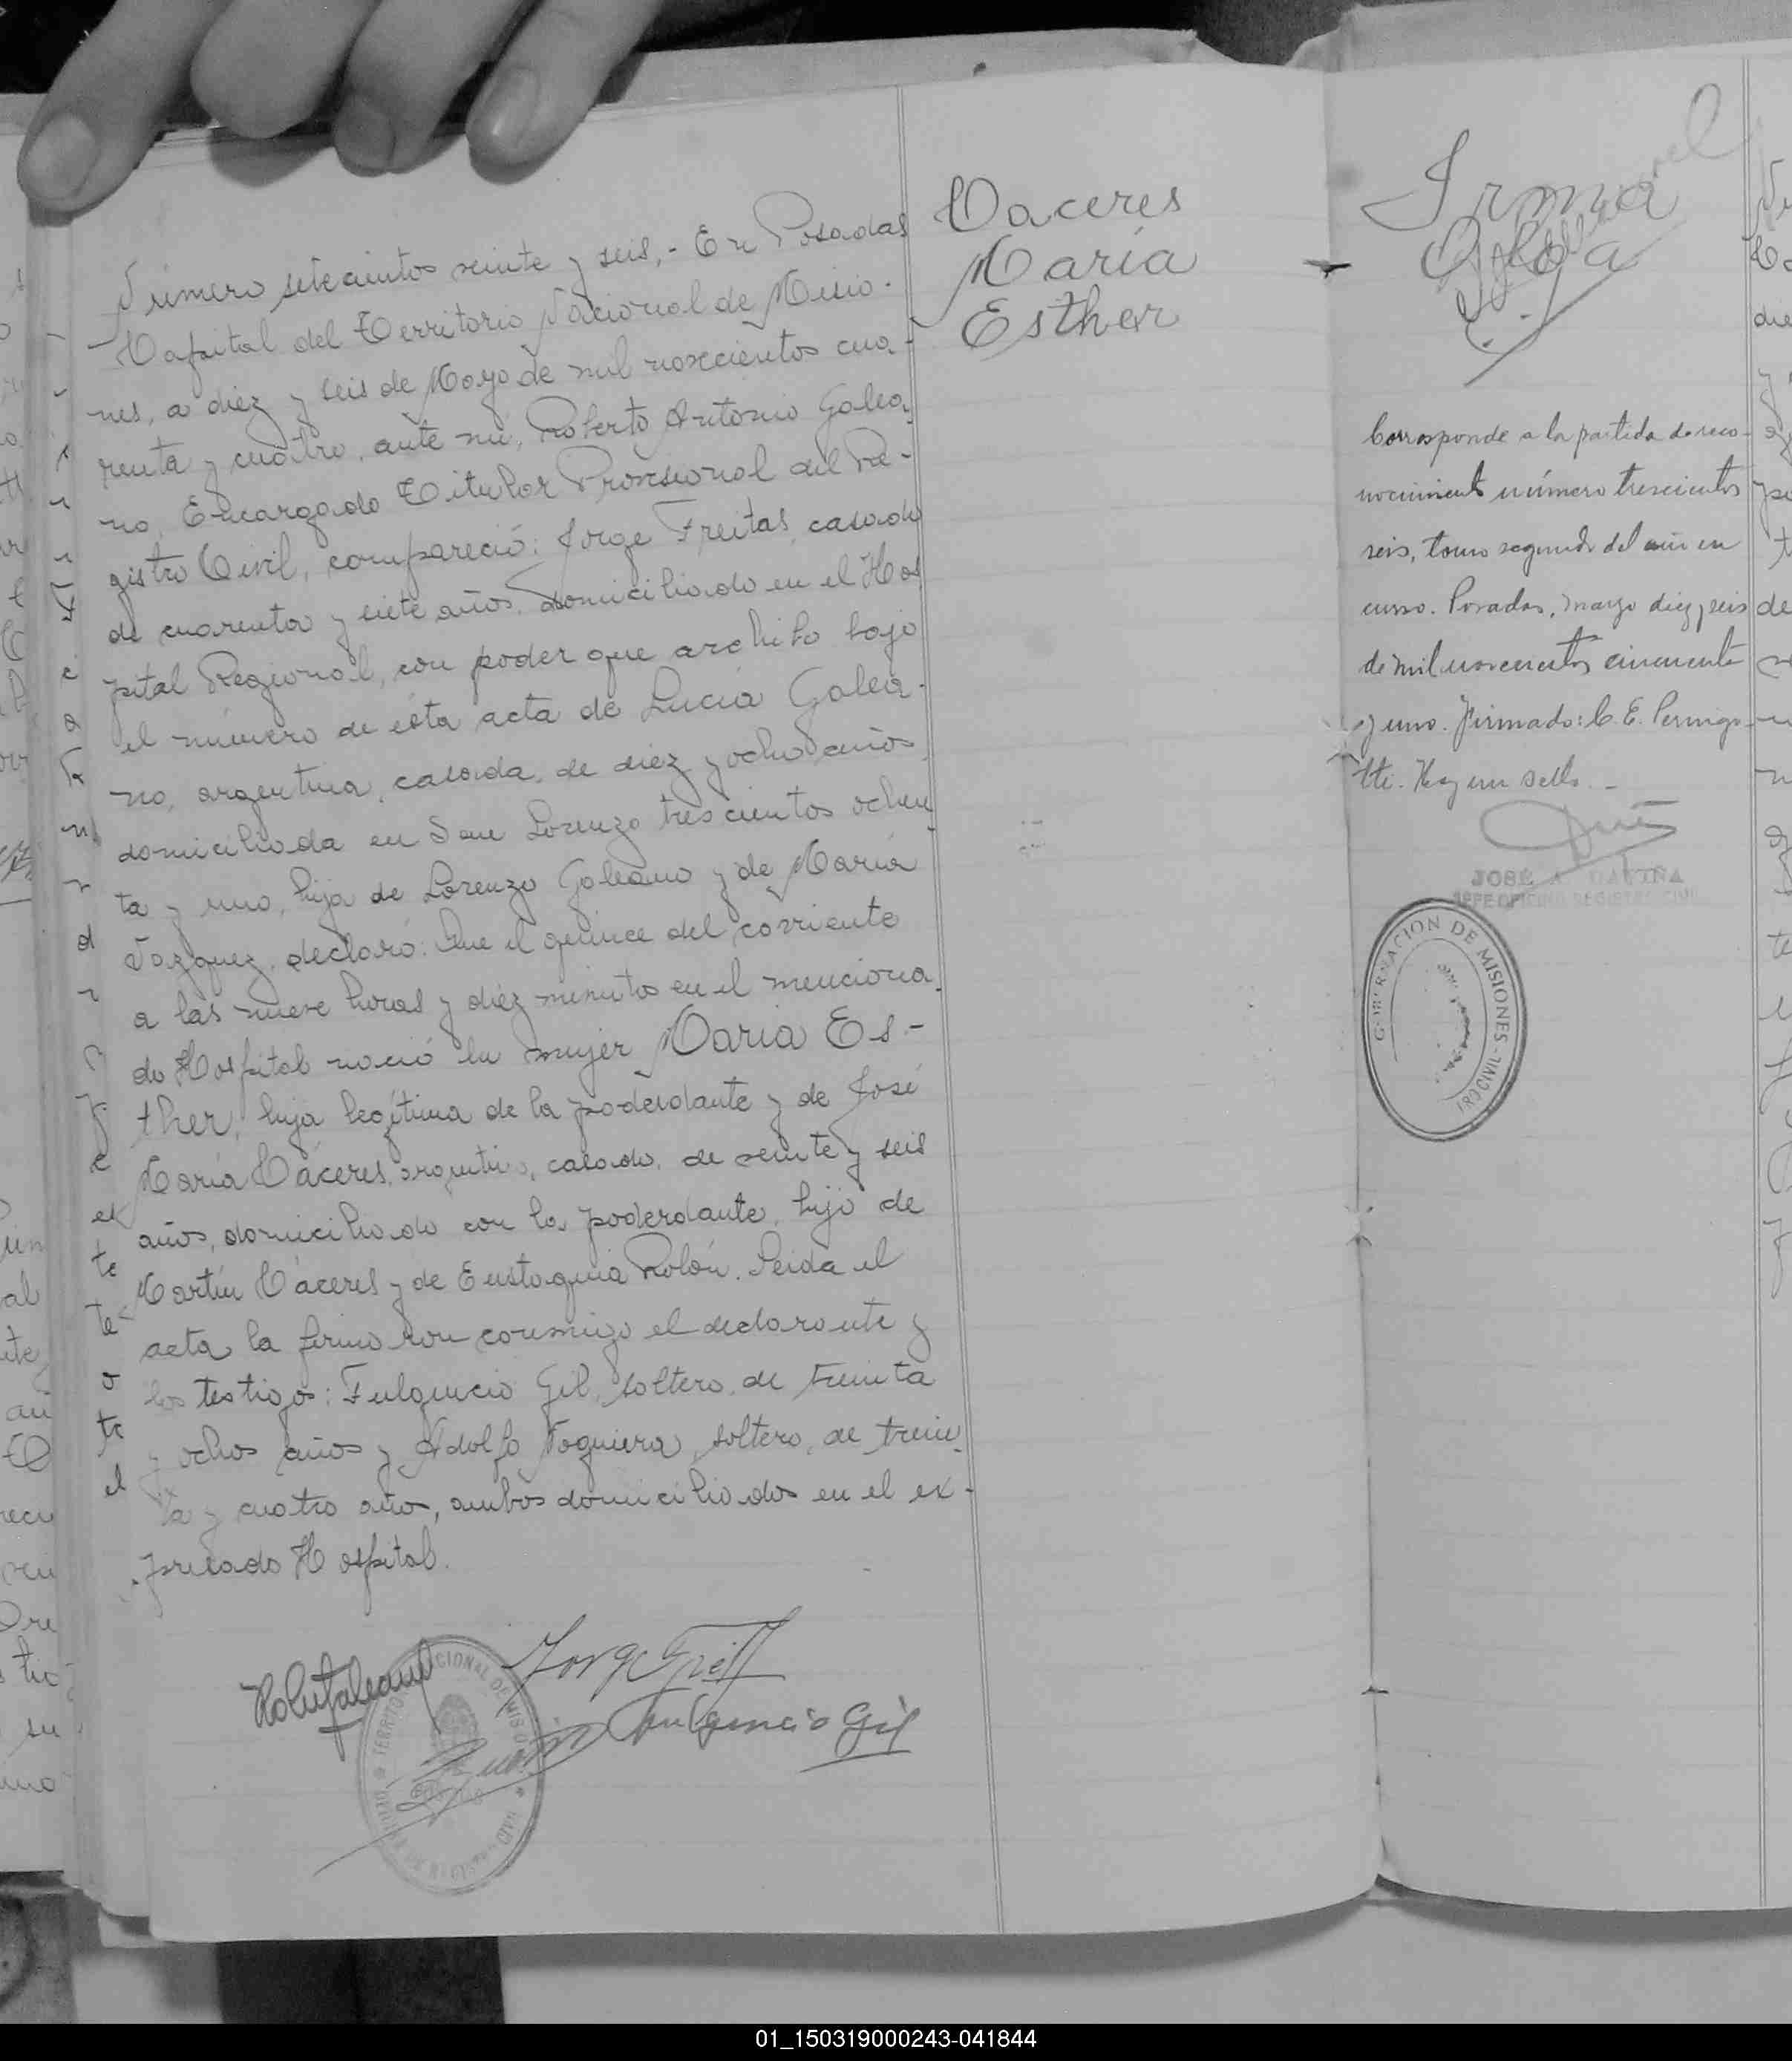 Número setecientos veinte y seis,- En Posadas
Capital del Territorio Nacional de Misio-
nes, a diez y seis de Mayo de mil novecientos cua-
renta y cuatro, ante mi, Roberto Antonio Galea-
no, Encargado Titular Provisional del Re-
gistro Civil, compareció: Jorge Freitas, casado
de cuarenta y siete años, domiciliado en el Hos
pital Regional, con poder que archivo bajo
el número de ésta acta de Lucía Galea-
no, argentina, casada, de diez y ocho años
domiciliada en San Lorenzo trescientos ochen
ta y uno, hija de Lorenzo Galeano y de María
Vazquez, declaró: Que el quince del corriente
a las nueve horas y diez minutos en el menciona
do Hospital nació la mujer María Es-
ther, hija legítima de la poderdante y de José
María Cáceres, argentino, casado, de veinte y seis
años, domiciliado con la poderdante, hijo de
Martín Cáceres y de Eustaquia Rolón. Leida el
acta la firmaron conmigo el declarante y
los testigos: Fulgencio Gil, soltero, de treinta
y ochos años y Adolfo Noguiera, soltero, de trein
ta y cuatro años, ambos domiciliados en el ex-
presado Hospital.
Jorge Freitas
Fulgencio Gil
TERRITORIO NACIONAL DE MISIONES
Caceres
María
Esther
Irma
Olga
Corresponde a la partida de reco-
nocimiento número trescientos
seis, tomo segundo del año en
curso. Posadas, marzo diez y seis
de mil novecientos cincuenta
y uno. Firmado: C. E. Pernigo-
tti. Hay un sello.-
JOSÉ A.
JEFE OFICINA REGISTRO CIVIL
GOBERNACION DE MISIONES
01_150319000243-041844